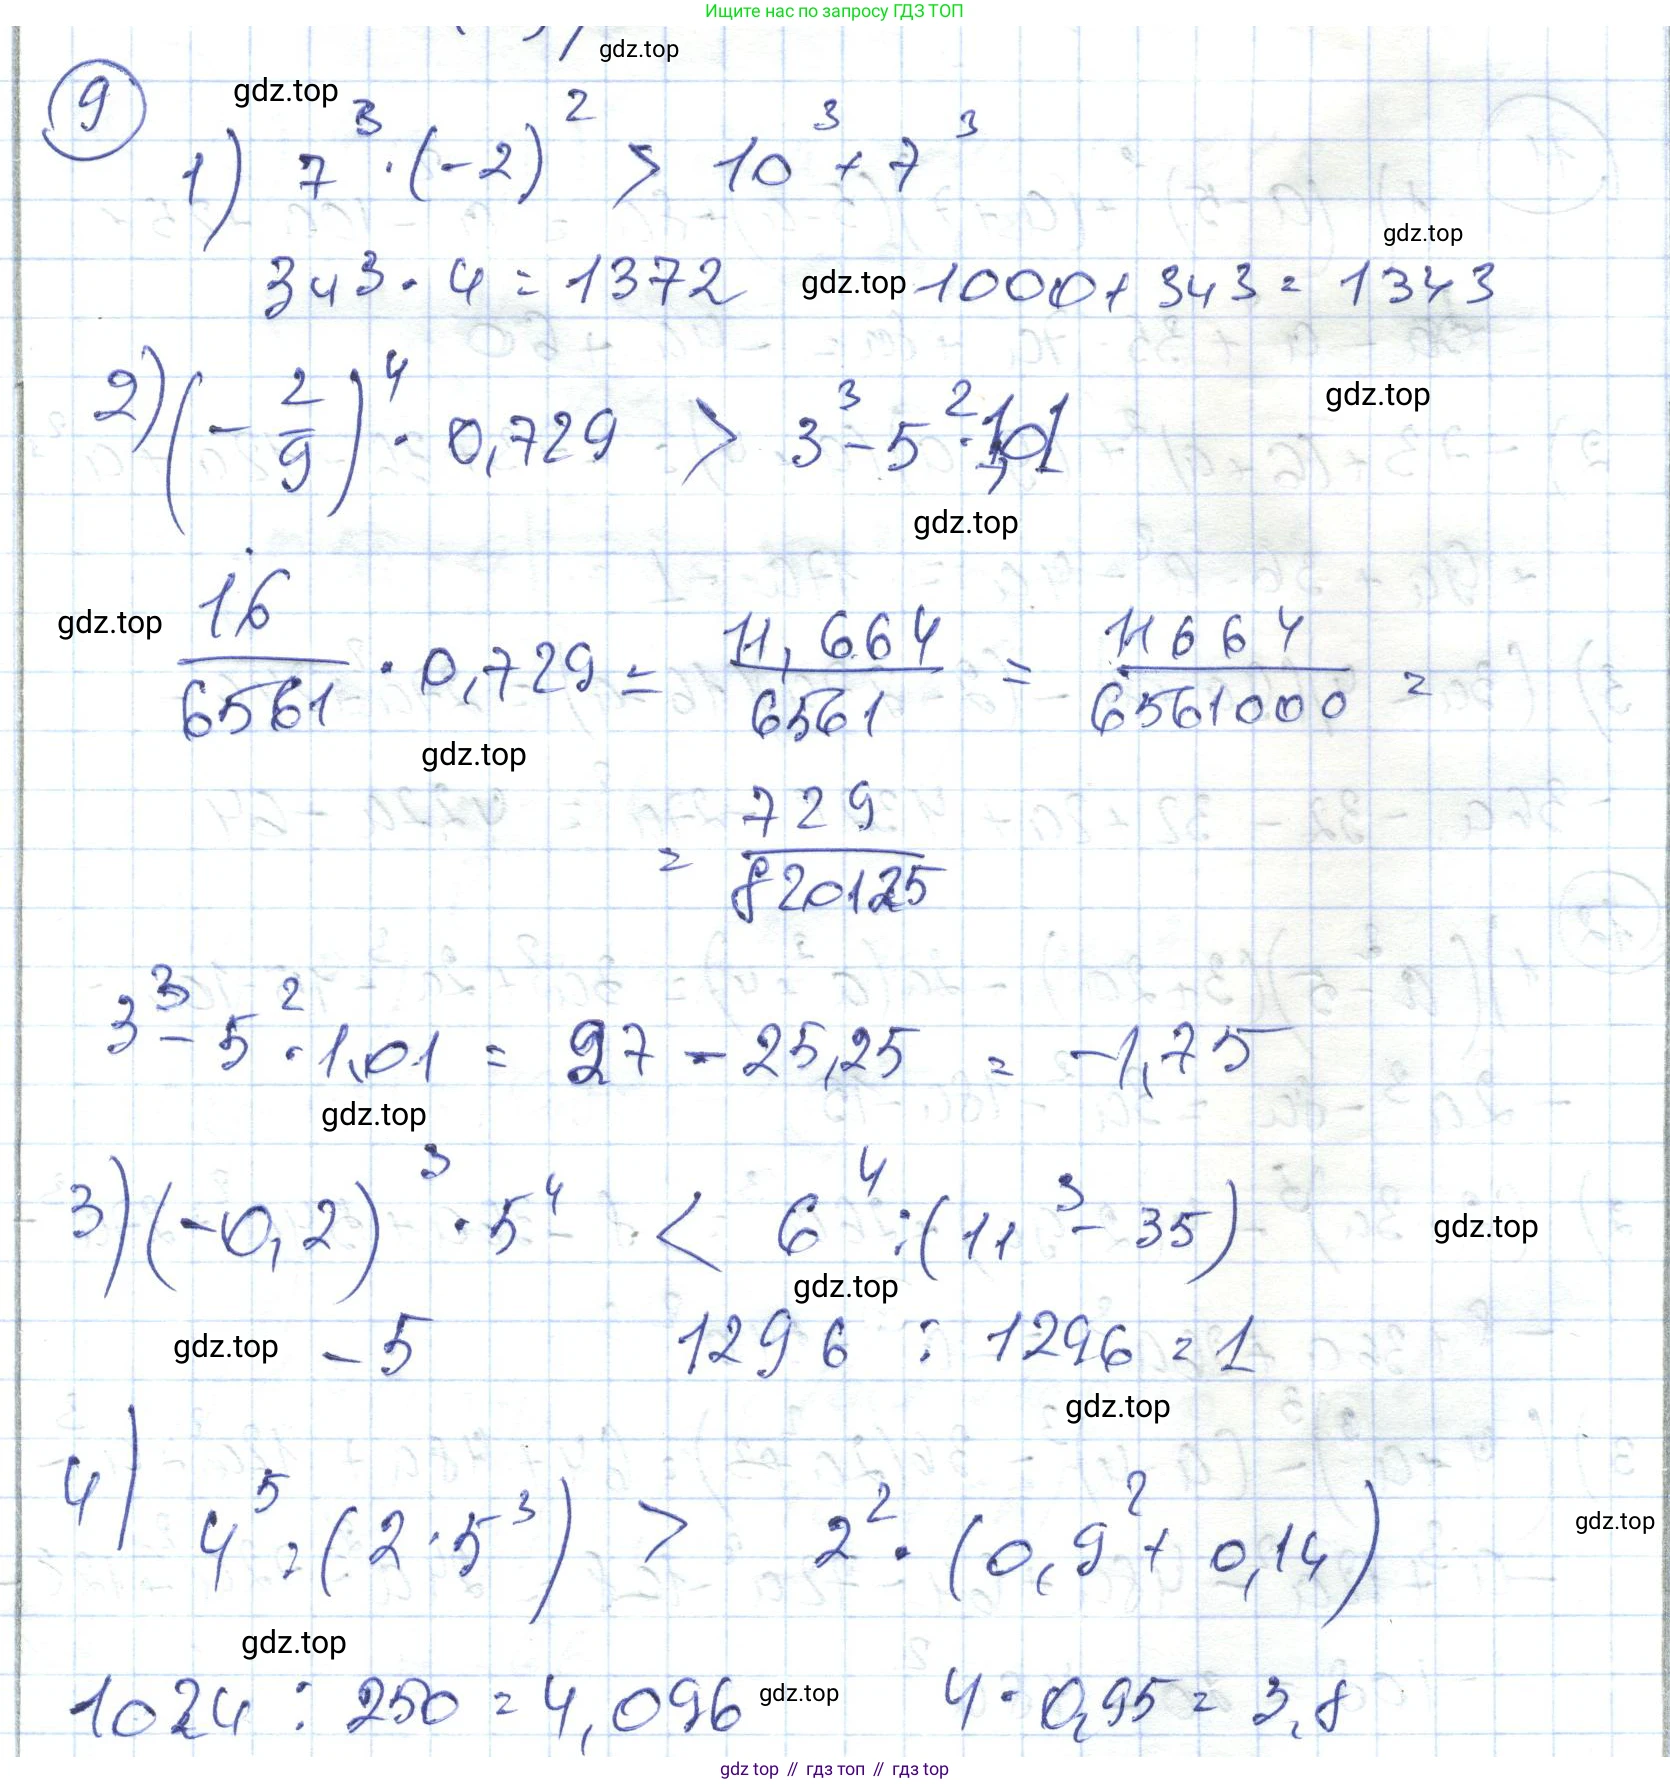 Ищите нас по запросу ГДЗ ТОП
gdz.top
9
gdz.top
1) 7³ · (-2)² > 10³ + 7³
gdz.top
343 · 4 = 1372 gdz.top 1000 + 343 = 1343
2) (-2/9)⁴ · 0,729 > 3³ - 5² · 1,01
gdz.top
gdz.top
gdz.top
16/6561 · 0,729 = 11,664/6561 = 11664/6561000 =
gdz.top
= 729/820125
3³ - 5² · 1,01 = 27 - 25,25 = -1,75
gdz.top
3) (-0,2)³ · 5⁴ < 6⁴ : (11³ - 35)
gdz.top
gdz.top
gdz.top -5 1296 : 1296 = 1
gdz.top
4) 4⁵ : (2 · 5³) > 2² · (0,9² + 0,14)
gdz.top
gdz.top
1024 : 250 = 4,096 gdz.top 4 · 0,95 = 3,8
gdz top // гдз топ // gdz top